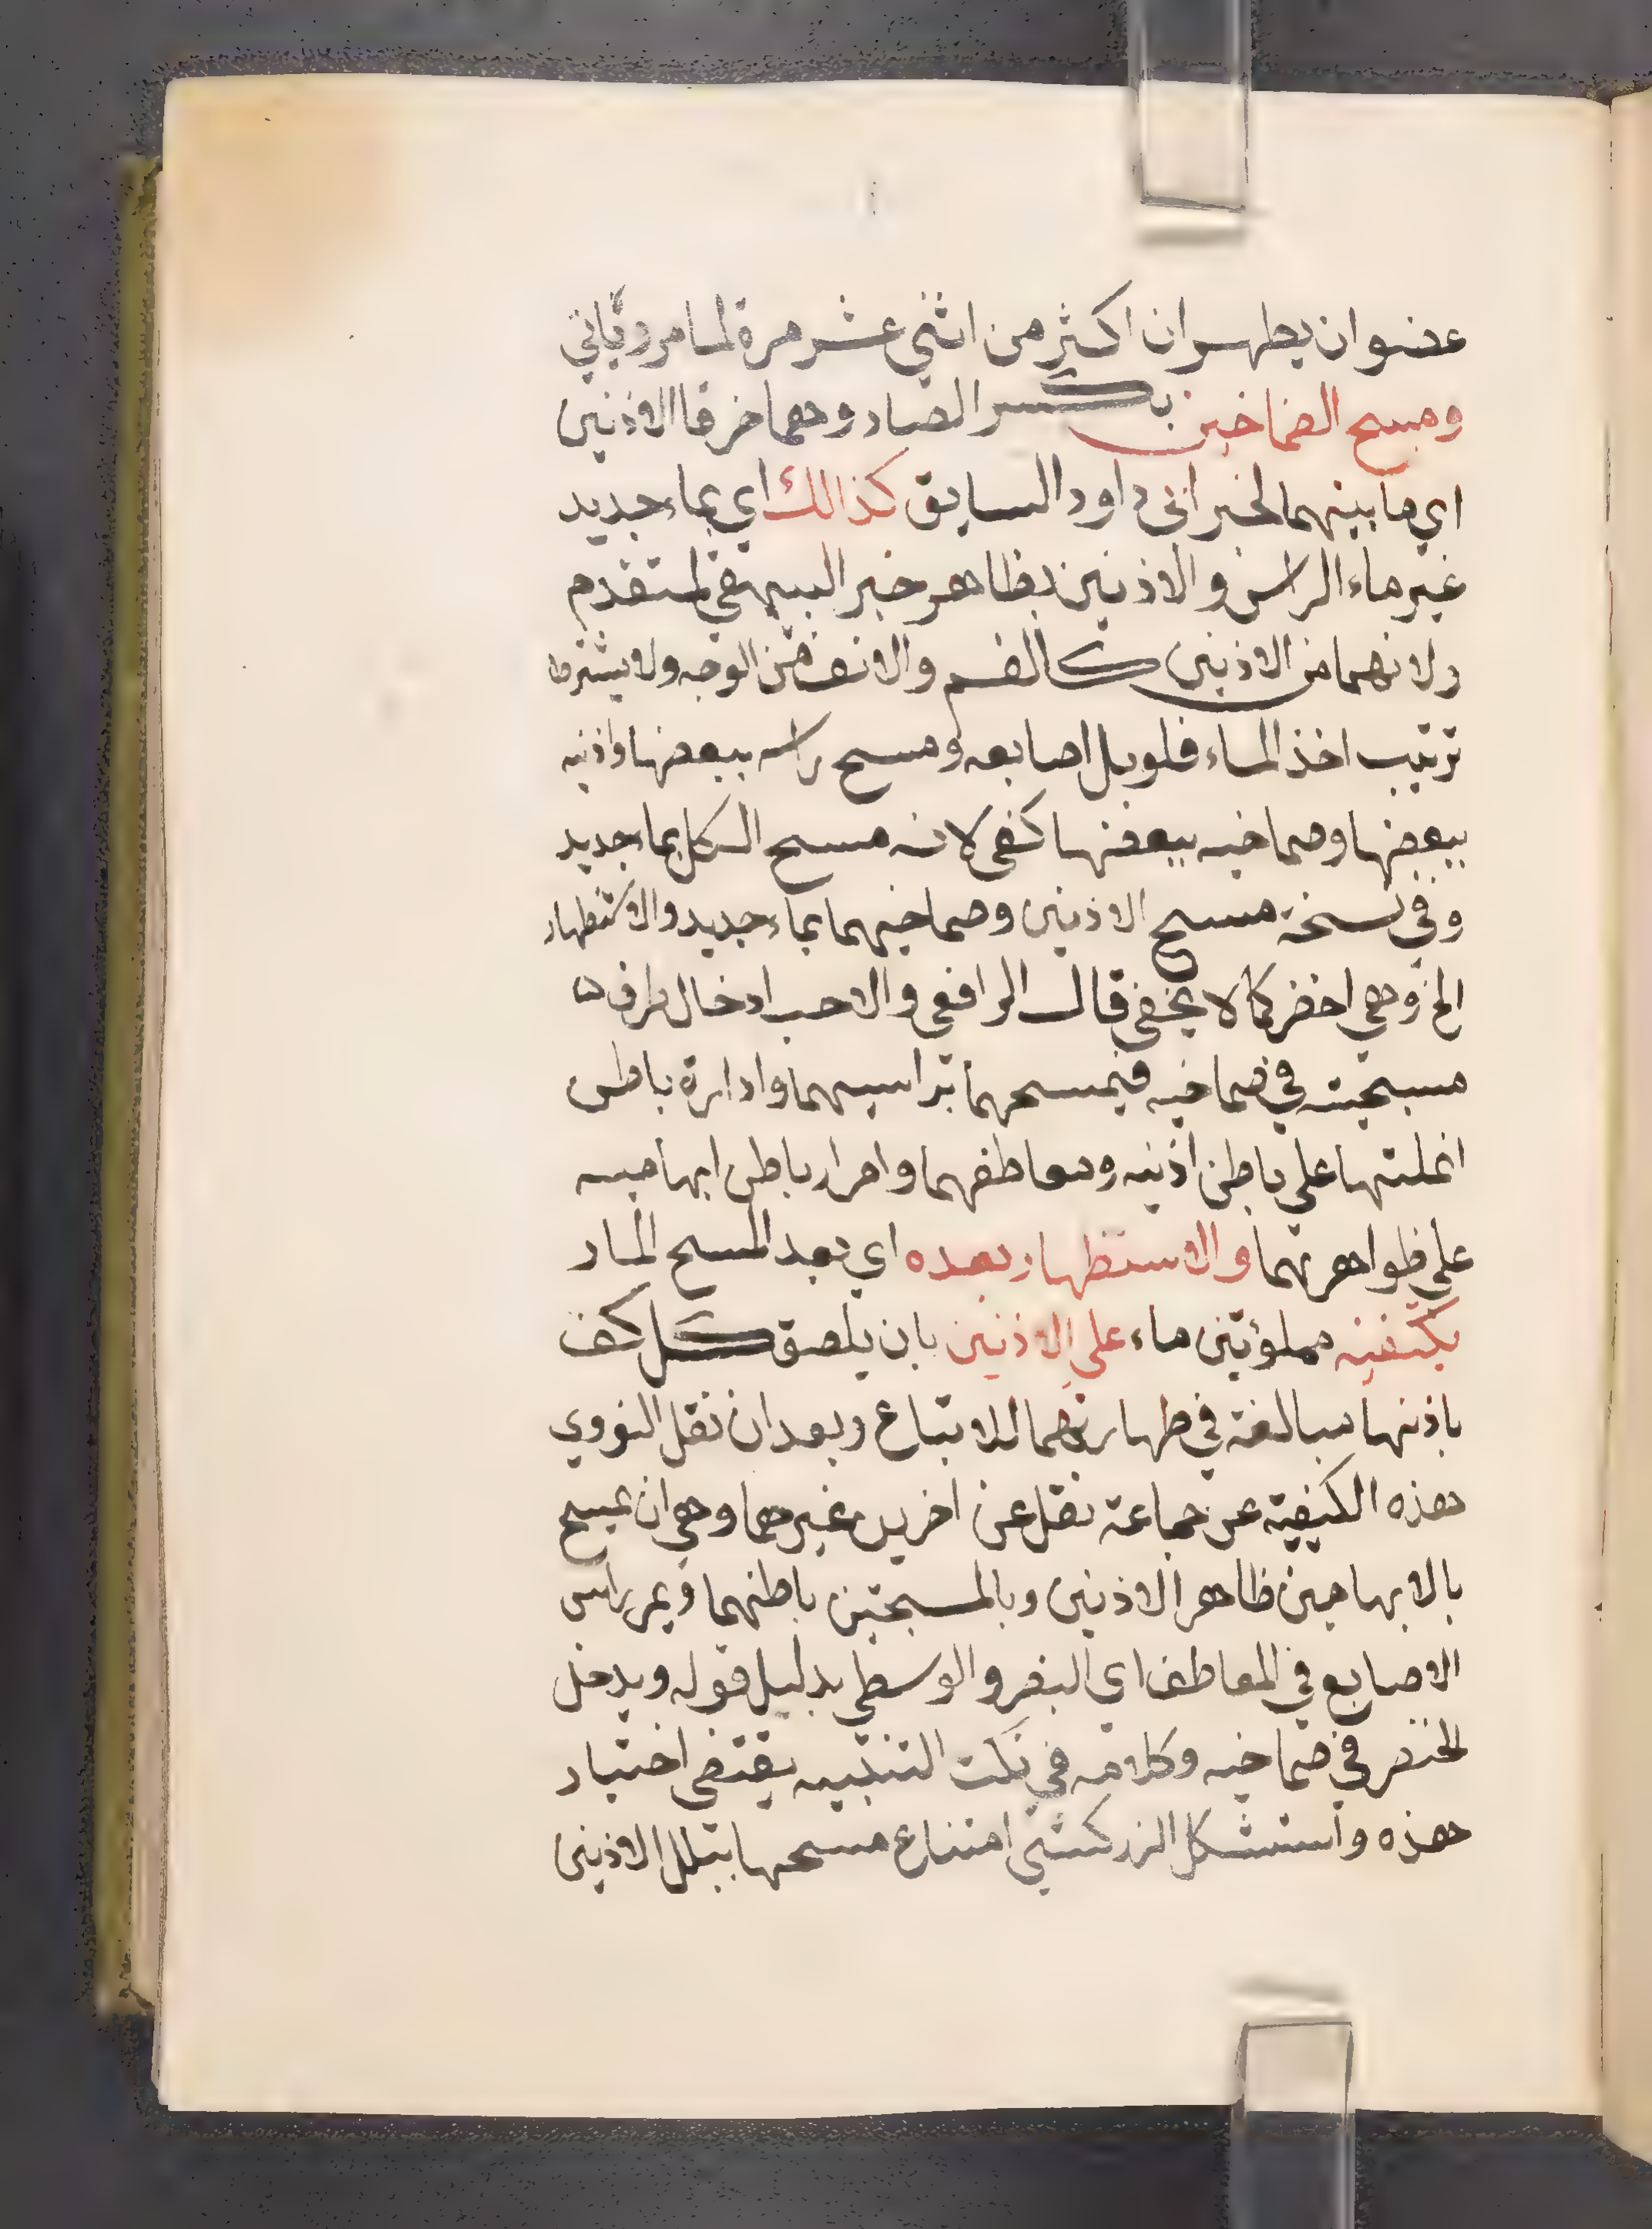 عضوان يطهران اكثر من اثني عشر مرة لما مر وياتي
ومسح الصماخين بكسر الصاد وهما خرقا الاذنين
اي ما بينهما لخبر ابي داود السابق كذالك اي بماء جديد
غير ماء الراس والاذنين لظاهر خبر البيهقي المتقدم
ولانهما من الاذنين كالفم والانف من الوجه ولا يشترط
ترتيب اخذ الماء فلو بل اصابعه ومسح راسه ببعضها واذنيه
ببعضها وصماخيه ببعضها كفى لانه مسح الكل بماء جديد
وفي نسخة مسح الاذنين وصماخيهما بماء جديد والاستظهار
الخ وهي اخضر كما لا يخفى قال الرافعي والاحب ادخال طرف
مسبحته في صماخيه فيمسحهما براسيهما وادارة باطن
انملتها على باطن اذنيه ومعاطفهما وامرار باطن ابهاميه
على ظواهرهما والاستظهار بعده اي بعد المسح المار
بكفيه مملوتين ماء على الاذنين بان يلصق كل كف
باذنها مبالغة في طهارتهما للاتباع وبعد ان نقل النووي
هذه الكيفية عن جماعة نقل عن اخرين غيرهما وهي ان يمسح
بالابهامين ظاهر الاذنين وبالمسبحتين باطنهما ويمر راس
الاصابع في المعاطف اي البنصر والوسطى بدليل قوله ويدخل
الخنصر في صماخيه وكلامه في نكت التنبيه يقتضي اختيار
هذه واستشكل الزركشي امتناع مسحها ببلل الاذنين